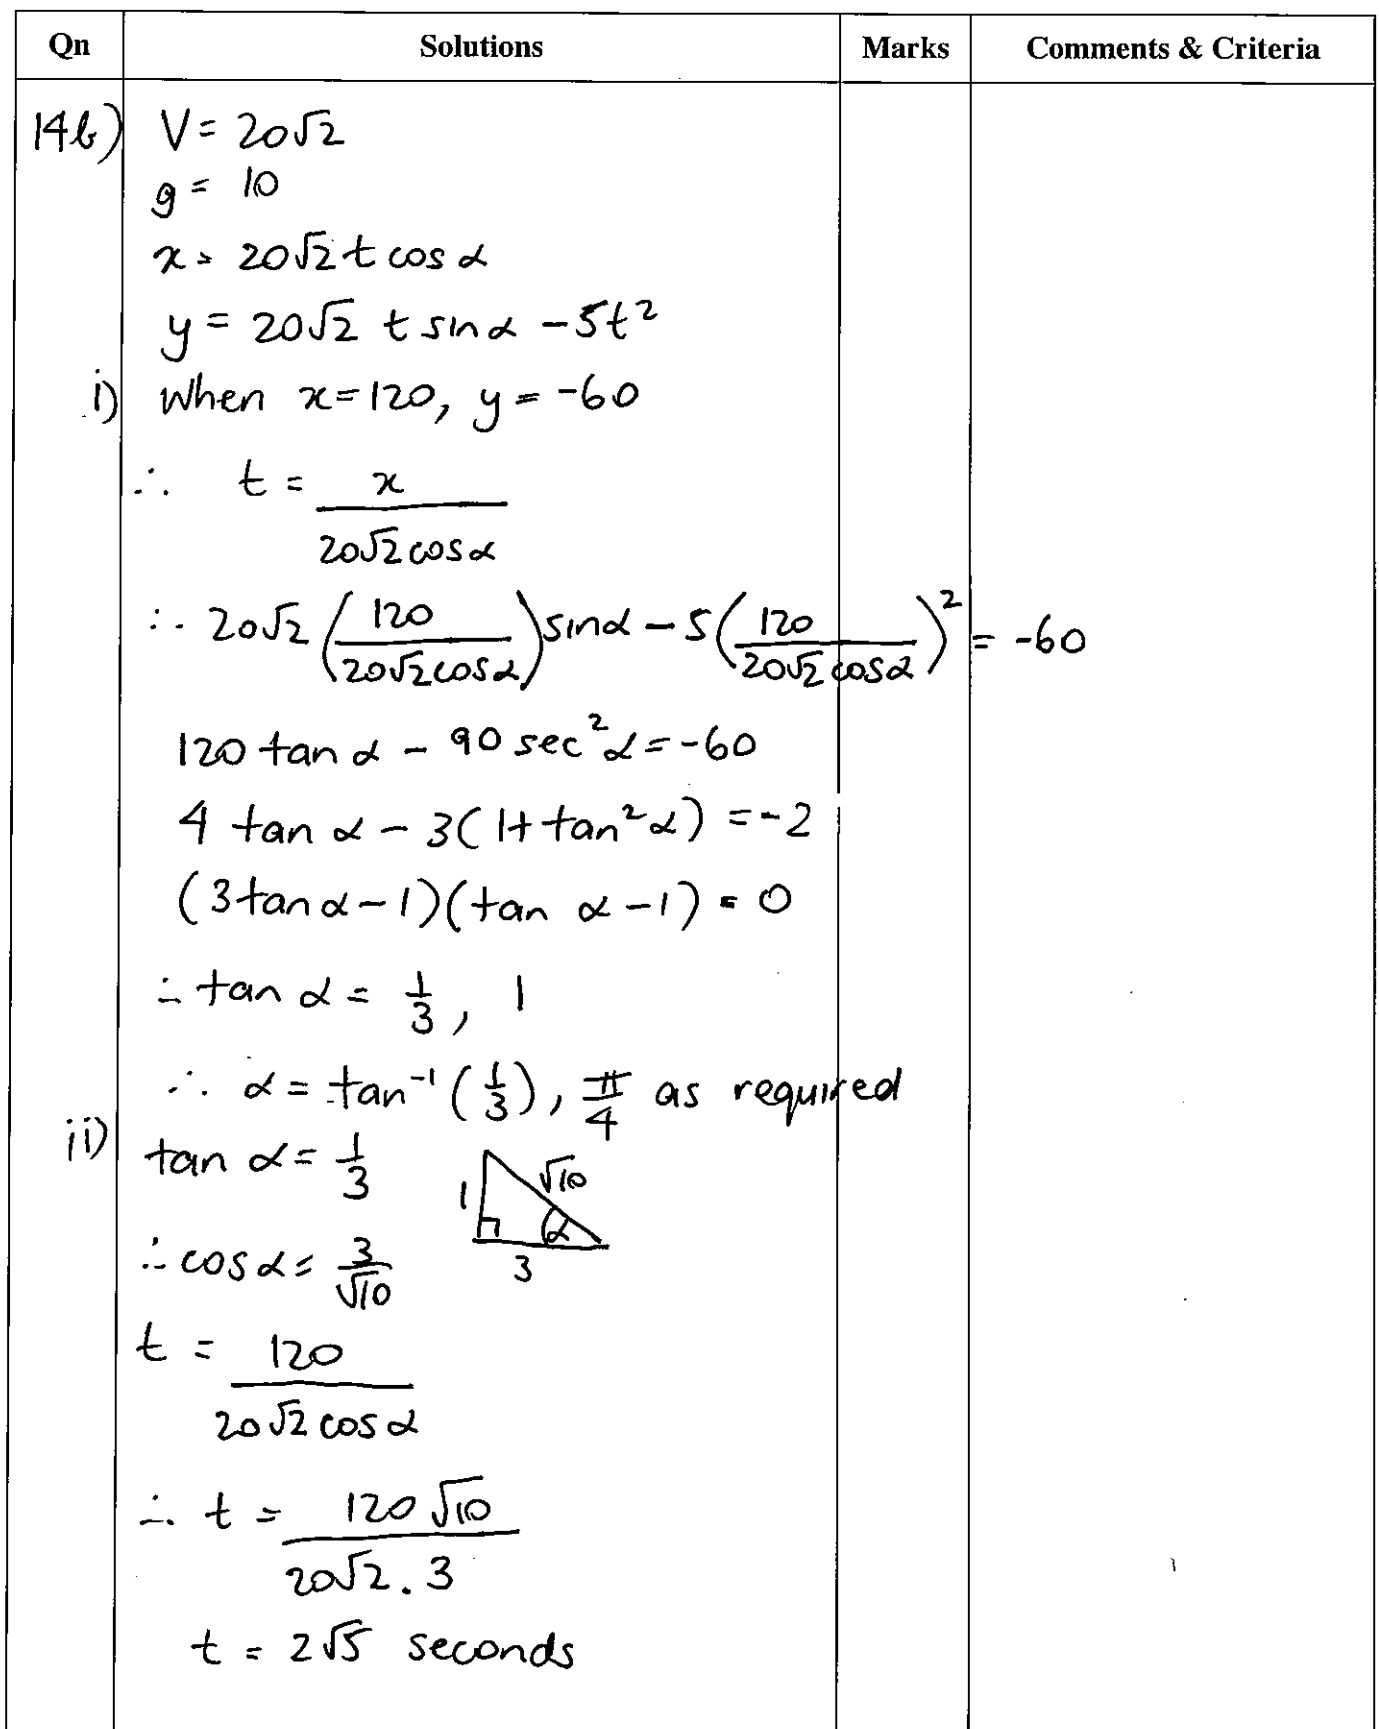 Qn Solutions Marks Comments & Criteria
14b) V = 20√2
g = 10
x = 20√2 t cos α
y = 20√2 t sin α - 5t²
i) When x = 120, y = -60
∴ t = x / (20√2 cos α)
∴ 20√2 (120 / (20√2 cos α)) sin α - 5 (120 / (20√2 cos α))² = -60
120 tan α - 90 sec² α = -60
4 tan α - 3(1 + tan² α) = -2
(3 tan α - 1)(tan α - 1) = 0
∴ tan α = 1/3, 1
∴ α = tan⁻¹(1/3), π/4 as required
ii) tan α = 1/3
1 √10 α 3
∴ cos α = 3/√10
t = 120 / (20√2 cos α)
∴ t = 120√10 / (20√2 . 3)
t = 2√5 seconds